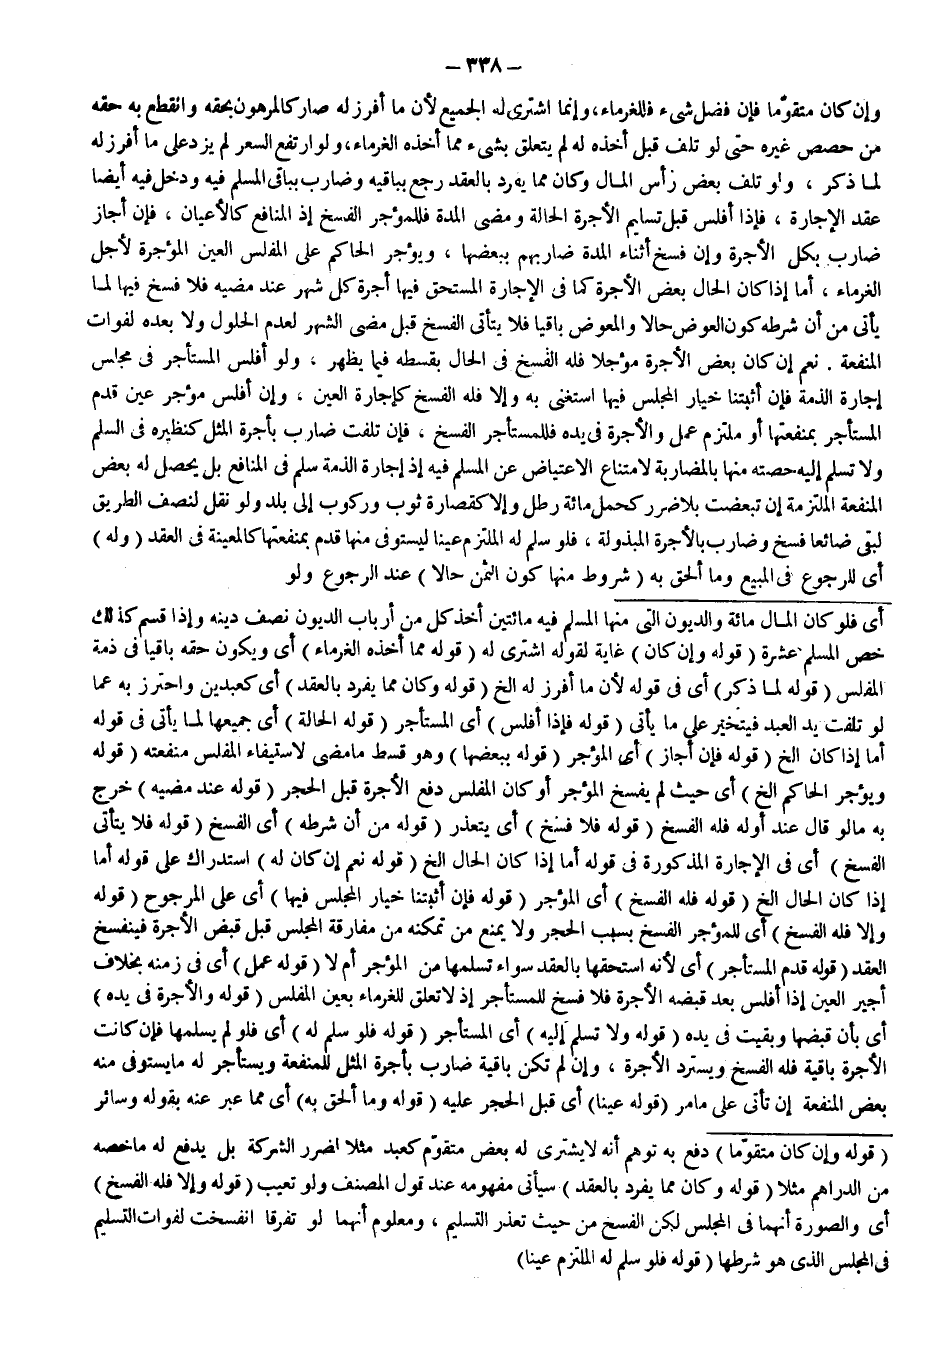 – ٣٣٨ –
وإن كان متقوّما فإن فضل شىء فللغرماء، وإنما اشترى له الجميع لأن ما أفرز له صار كالمرهون بحقه وانقطع به حقه
من حصص غيره حتى لو تلف قبل أخذه له لم يتعلق بشىء مما أخذه الغرماء، ولو ارتفع السعر لم يزد على ما أفرز له
لما ذكر ، ولو تلف بعض رأس المال وكان مما يفرد بالعقد رجع بباقيه وضارب بباقى المسلم فيه ودخل فيه أيضا
عقد الإجارة ، فإذا أفلس قبل تسليم الأجرة الحالة ومضى المدة فللمؤجر الفسخ إذ المنافع كالأعيان ، فإن أجاز
ضارب بكل الأجرة وإن فسخ أثناء المدة ضاربهم ببعضها ، ويؤجر الحاكم على المفلس العين المؤجرة لأجل
الغرماء ، أما إذا كان الحال بعض الأجرة كما فى الإجارة المستحق فيها أجرة كل شهر عند مضيه فلا فسخ فيها لما
يأتى من أن شرطه كون العوض حالا والمعوض باقيا فلا يتأتى الفسخ قبل مضى الشهر لعدم الحلول ولا بعده لفوات
المنفعة . نعم إن كان بعض الأجرة مؤجلا فله الفسخ فى الحال بقسطه فيما يظهر ، ولو أفلس المستأجر فى مجلس
إجارة الذمة فإن أثبتنا خيار المجلس فيها استغنى به وإلا فله الفسخ كإجارة العين ، وإن أفلس مؤجر عين قدم
المستأجر بمنفعتها أو ملتزم عمل والأجرة فى يده فللمستأجر الفسخ ، فإن تلفت ضارب بأجرة المثل كنظيره فى السلم
ولا تسلم إليه حصته منها بالمضاربة لامتناع الاعتياض عن المسلم فيه إذ إجارة الذمة سلم فى المنافع بل يحصل له بعض
المنفعة الملتزمة إن تبعضت بلا ضرر كحمل مائة رطل وإلا كقصارة ثوب وركوب إلى بلد ولو نقل لنصف الطريق
لبقى ضائعا فسخ وضارب بالأجرة المبذولة ، فلو سلم له الملتزم عينا ليستوفى منها قدم بمنفعتها كالمعينة فى العقد ( وله )
أى للرجوع فى المبيع وما ألحق به ( شروط منها كون الثمن حالا ) عند الرجوع ولو
أى فلو كان المال مائة والديون التى منها المسلم فيه مائتين أخذ كل من أرباب الديون نصف دينه وإذا قسم كذلك
خص المسلم عشرة ( قوله وإن كان ) غاية لقوله اشترى له ( قوله مما أخذه الغرماء ) أى ويكون حقه باقيا فى ذمة
المفلس ( قوله لما ذكر) أى فى قوله لأن ما أفرز له الخ ( قوله وكان مما يفرد بالعقد ) أى كعبدين واحترز به عما
لو تلفت يد العبد فيتخير على ما يأتى ( قوله فإذا أفلس ) أى المستأجر ( قوله الحالة ) أى جميعها لما يأتى فى قوله
أما إذا كان الخ ( قوله فإن أجاز ) أى المؤجر ( قوله ببعضها ) وهو قسط ما مضى لاستيفاء المفلس منفعته ( قوله
ويؤجر الحاكم الخ ) أى حيث لم يفسخ المؤجر أو كان المفلس دفع الأجرة قبل الحجر ( قوله عند مضيه ) خرج
به ما لو قال عند أوله فله الفسخ ( قوله فلا فسخ ) أى يتعذر ( قوله من أن شرطه ) أى الفسخ ( قوله فلا يتأتى
الفسخ ) أى فى الإجارة المذكورة فى قوله أما إذا كان الحال الخ ( قوله نعم إن كان له ) استدراك على قوله أما
إذا كان الحال الخ ( قوله فله الفسخ ) أى المؤجر ( قوله فإن أثبتنا خيار المجلس فيها ) أى على المرجوح ( قوله
وإلا فله الفسخ ) أى للمؤجر الفسخ بسبب الحجر ولا يمنع من تمكنه من مفارقة المجلس قبل قبض الأجرة فينفسخ
العقد ( قوله قدم المستأجر ) أى لأنه استحقها بالعقد سواء تسلمها من المؤجر أم لا ( قوله عمل ) أى فى زمنه بخلاف
أجير العين إذا أفلس بعد قبضه الأجرة فلا فسخ للمستأجر إذ لا تعلق للغرماء بعين المفلس ( قوله والأجرة فى يده )
أى بأن قبضها وبقيت فى يده ( قوله ولا تسلم إليه ) أى المستأجر ( قوله فلو سلم له ) أى فلو لم يسلمها فإن كانت
الأجرة باقية فله الفسخ ويسترد الأجرة ، وإن لم تكن باقية ضارب بأجرة المثل للمنفعة ويستأجر له ما يستوفى منه
بعض المنفعة إن تأتى على ما مر (قوله عينا) أى قبل الحجر عليه ( قوله وما ألحق به) أى مما عبر عنه بقوله وسائر
( قوله وإن كان متقوّما ) دفع به توهم أنه لا يشترى له بعض متقوّم كعبد مثلا لضرر الشركة بل يدفع له ما خصه
من الدراهم مثلا ( قوله وكان مما يفرد بالعقد ) سيأتى مفهومه عند قول المصنف ولو تعيب ( قوله وإلا فله الفسخ )
أى والصورة أنهما فى المجلس لكن الفسخ من حيث تعذر التسليم ، ومعلوم أنهما لو تفرقا انفسخت لفوات التسليم
فى المجلس الذى هو شرطها ( قوله فلو سلم له الملتزم عينا)